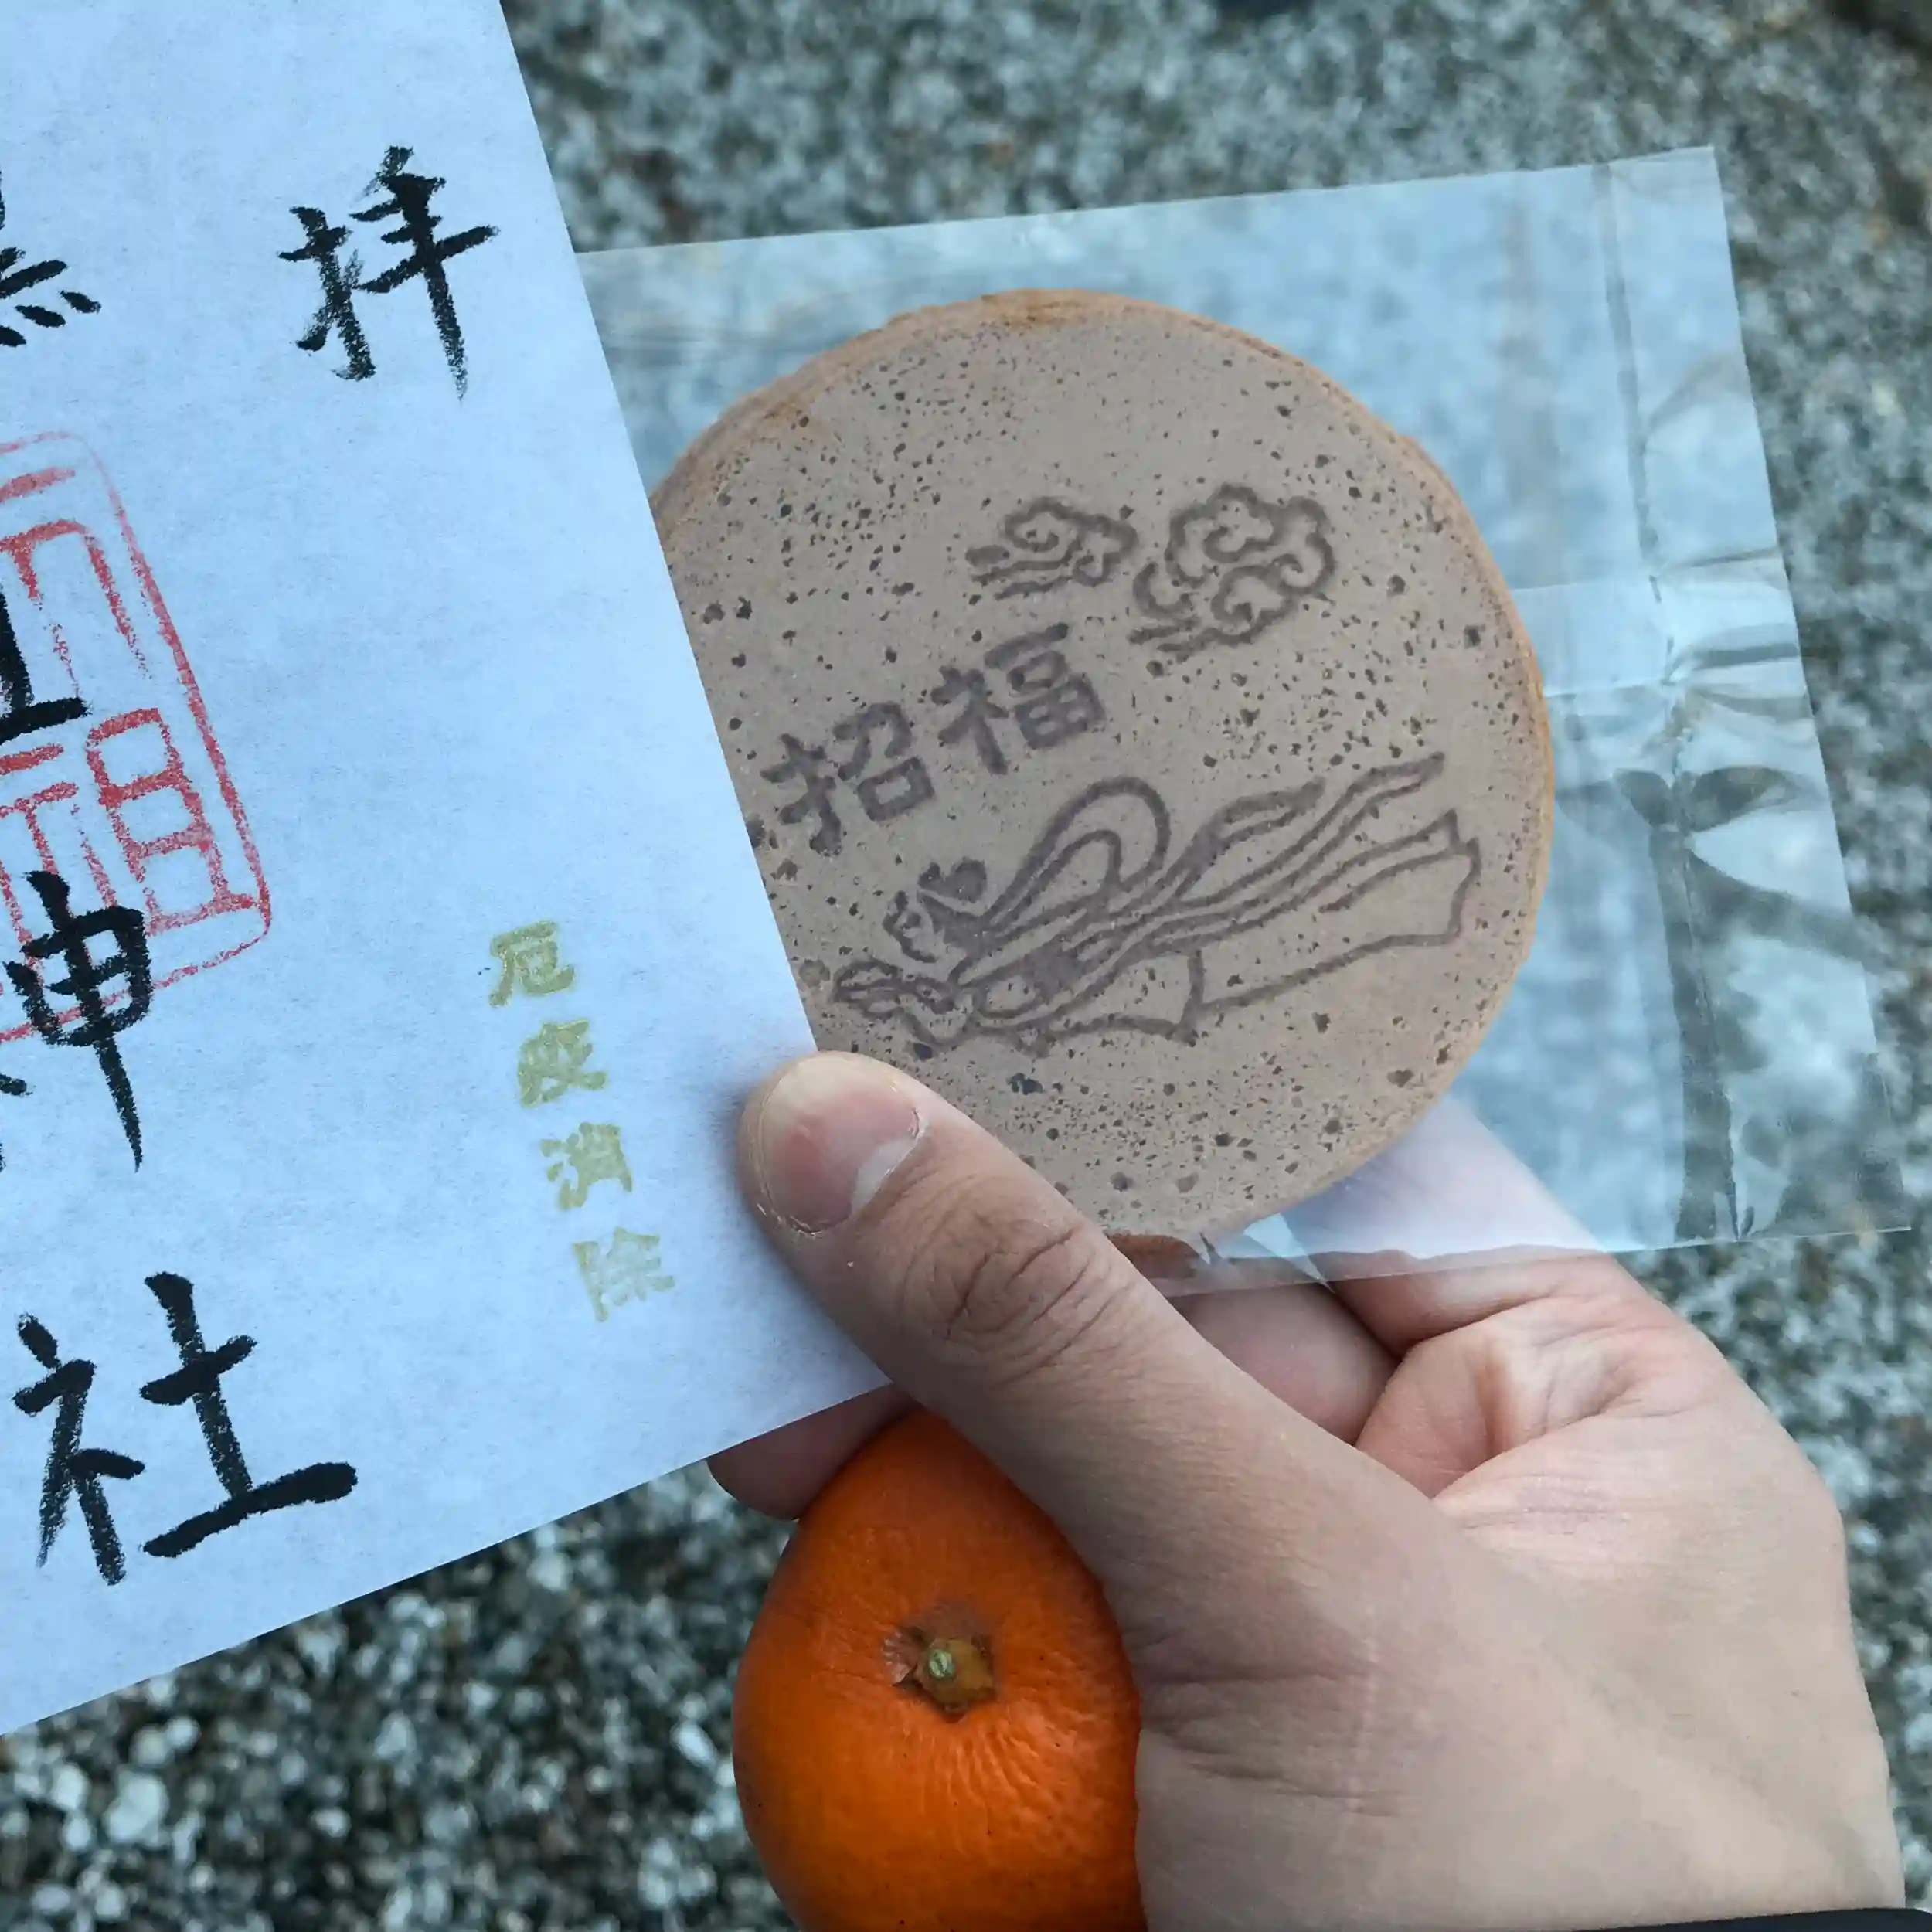 拝
神
社
厄疫消除
招福